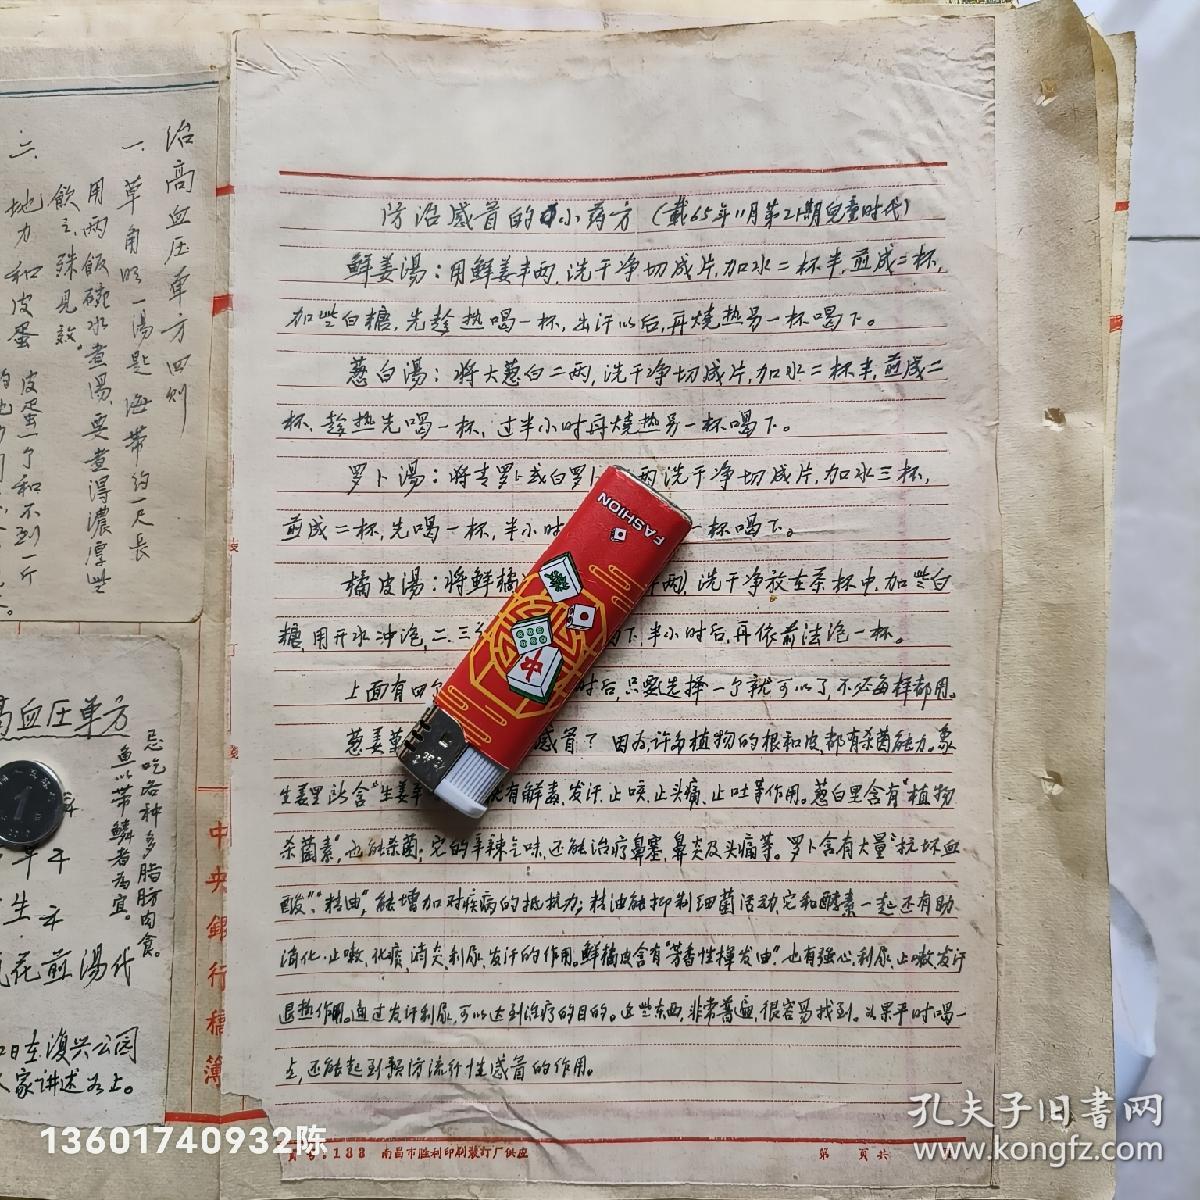 防治感冒的小药方（载65年11月第21期兒童时代）
鲜姜湯：用鲜姜半两，洗干净切成片，加水二杯半，煎成二杯，
加些白糖，先趁热喝一杯，出汗以后，再烧热另一杯喝下。
葱白湯：将大葱白二两，洗干净切成片，加水二杯半，煎成二
杯，趁热先喝一杯，过半小时再烧热另一杯喝下。
罗卜湯：将青罗卜或白罗卜 两洗干净切成片，加水三杯，
煎成二杯，先喝一杯，半小时 一杯喝下。
橘皮湯：将鲜橘 两）洗干净放在茶杯中，加些白
糖，用开水冲泡，二、三 下，半小时后，再依前法泡一杯。
上面有四 时后，只要选择一个就可以了，不必每样都用。
葱姜 感冒？因为许多植物的根和皮，都有杀菌能力。象
生姜里所含“生姜 有解毒、发汗、止咳、止头痛、止吐等作用。葱白里含有“植物
杀菌素”，也能杀菌；它的辛辣气味，还能治疗鼻塞、鼻炎及头痛等。罗卜含有大量“抗坏血
酸”、“精油”，能增加对疾病的抵抗力；精油能抑制细菌活动，它和酵素一起还有助
消化、止嗽、化痰、消炎、利尿、发汗的作用。鲜橘皮含有“芳香性挥发油”，也有强心、利尿、止嗽、发汗
退热作用。通过发汗利尿，可以达到治疗的目的。这些东西，非常普遍，很容易找到。如果平时喝一
点，还能起到预防流行性感冒的作用。
货号：133 南昌市胜利印刷装订厂供应 第 页共
治高血压单方四则
一、草角 一湯匙 海带约一尺长
用两飯碗水煮湯，要煮得濃厚些
飲之殊見效。
二、地力和皮蛋 皮蛋一个和不到一斤
高血压单方
忌吃各种多脂肪肉食。
鱼以带鳞者为宜。
1
生
花煎湯代
日在復兴公园
家讲述如上。
中央銀行稿簿
FASHION
發
中
孔夫子旧書网
www.kongfz.com
13601740932陈